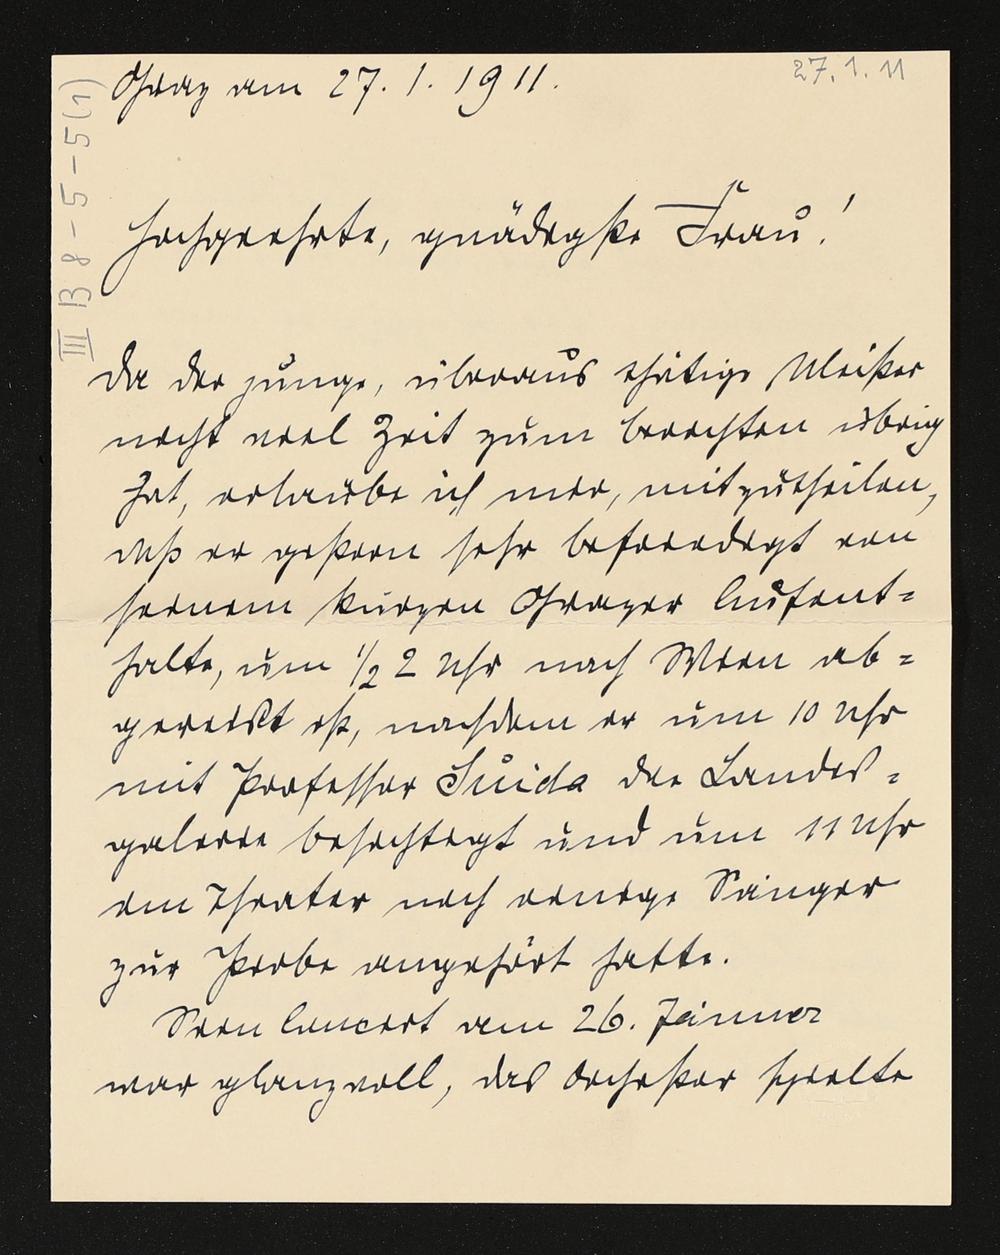 Graz am 27. 1. 1911.
27. 1. 11
III B 8-5-5(1)
Hochgeehrte, gnädigste Frau!
Da der junge, überaus thätige Meister
nicht viel Zeit zum berichten übrig
hat, erlaube ich mir, mitzutheilen,
daß er gestern sehr befriedigt von
seinem kurzen Grazer Aufent=
halte, um 1/2 2 Uhr nach Wien ab=
gereist ist, nachdem er um 10 Uhr
mit Professor Suida die Landes=
galerie besichtigt und um 11 Uhr
im Theater noch einige Sänger
zur Probe angehört hatte.
Sein Concert am 26. Jänner
war glanzvoll, das Orchester spielte